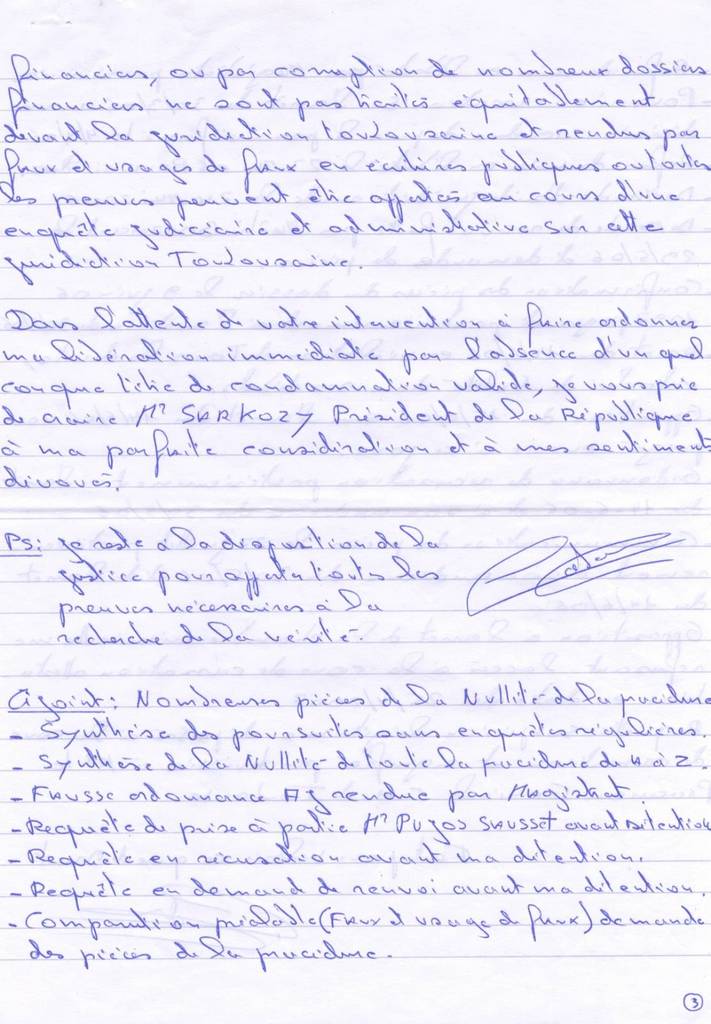 financiers, ou par corruption de nombreux dossiers
financiers ne sont pas traités équitablement
devant la juridiction toulousaine et rendus par
faux et usages de faux en écritures publiques ou toutes
les preuves peuvent être apportés au cours d'une
enquête judiciaire et administrative sur cette
juridiction Toulousaine.
Dans l'attente de votre intervention à faire ordonner
ma libération immédiate par l'absence d'un quel
conque titre de condamnation valide, je vous prie
de croire Mr SARKOZY Président de la République
à ma parfaite considération et à mes sentiments
dévoués.
PS: je reste à la disposition de la
justice pour apporter toutes les
preuves nécessaires à la
recherche de la vérité.
Ci joint: Nombreuses pièces de la Nullité de la procédure
- Synthèse des poursuites sans enquêtes régulières.
- Synthèse de la Nullité de toute la procédure de A à Z.
- FAUSSE ordonnance rendue par MAgistrat.
- Requête de prise à partie Mr PUJOS SAUSSET avant détention
- Requête en récusation avant ma détention.
- Requête en demande de renvoi avant ma détention.
- Comparution préalable (FAux et usage de faux) demande
des pièces de la procédure.
3